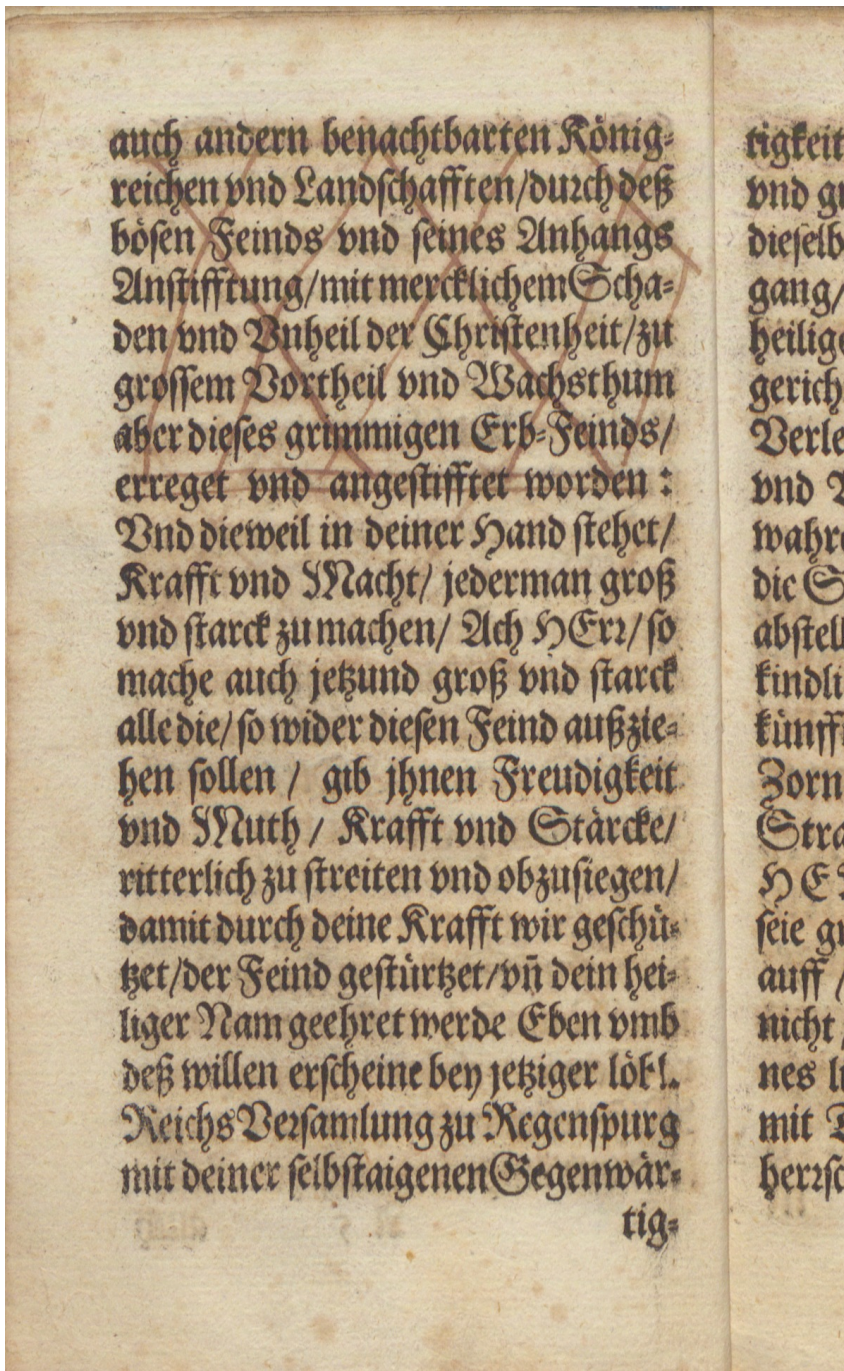 auch andern benachtbarten König-
reichen vnd Landschafften/durch deß
bösen Feinds vnd seines Anhangs
Anstifftung/mit mercklichem Scha-
den vnd Vnheil der Christenheit/zu
grossem Vortheil vnd Wachsthum
aber dieses grimmigen Erb-Feinds/
erreget vnd angestifftet worden:
Vnd dieweil in deiner Hand stehet/
Krafft vnd Macht/ jederman groß
vnd starck zu machen/ Ach HErr/ so
mache auch jetzund groß vnd starck
alle die/ so wider diesen Feind außzie-
hen sollen / gib jhnen Freudigkeit
vnd Muth / Krafft vnd Stärcke/
ritterlich zu streiten vnd obzusiegen/
damit durch deine Krafft wir geschü-
tzet/der Feind gestürtzet/vñ dein hei-
liger Nam geehret werde Eben vmb
deß willen erscheine bey jetziger löbl.
Reichs Versamlung zu Regenspurg
mit deiner selbst aigenen Gegenwär-
tig-
tigkeit
vnd g
dieselb
gang/
heilig
gerich
Verle
vnd
wahr
die S
abstell
kindli
künff
Zorn
Stra
HE
seie g
auff /
nicht
nes l
mit
herrsc